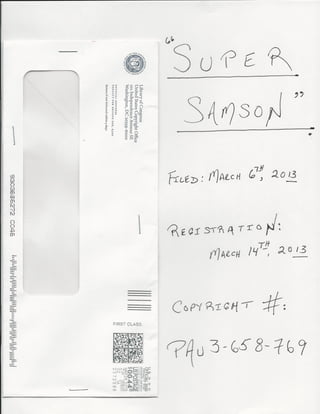 "SUPER
SAMSON"
FILED: MARCH 6TH, 2013
REGISTRATION:
MARCH 14TH, 2013
COPYRIGHT #:
PAu 3-658-769
Library of Congress
United States Copyright Office
101 Independence Avenue SE
Washington, DC 20559-6000
FIRST CLASS